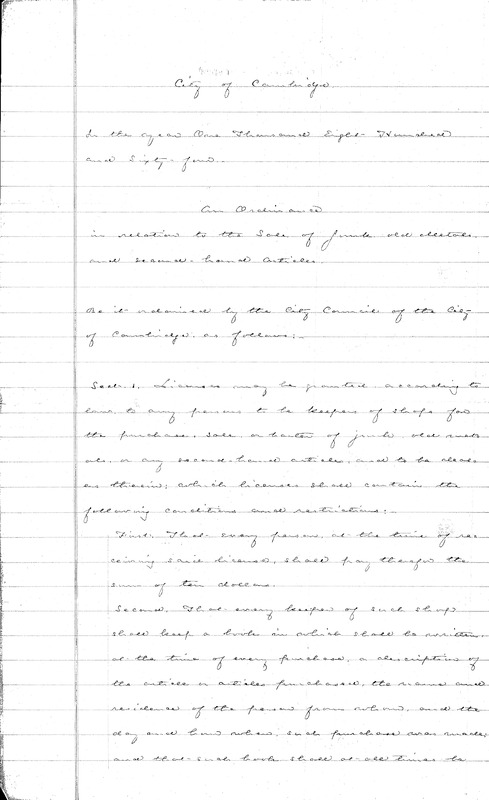 City of Cambridge.
In the year One Thousand Eight Hundred
and Sixty-four.
An Ordinance
in relation to the Sale of Junk, old Metals,
and second-hand Articles.
Be it ordained by the City Council of the City
of Cambridge, as follows:-
Sect. 1. Licenses may be granted, according to
law, to any person to be keeper of shops for
the purchase, sale, or barter of junk, old met-
als, or any second-hand articles, and to be deal-
ers therein; which licenses shall contain the
following conditions and restrictions:-
First. That every person, at the time of re-
ceiving said license, shall pay therefor the
sum of ten dollars.
Second. That every keeper of such shop
shall keep a book in which shall be written,
at the time of every purchase, a description of
the article or articles purchased, the name and
residence of the person from whom, and the
day and hour when, such purchase was made;
and that such book shall at all times be